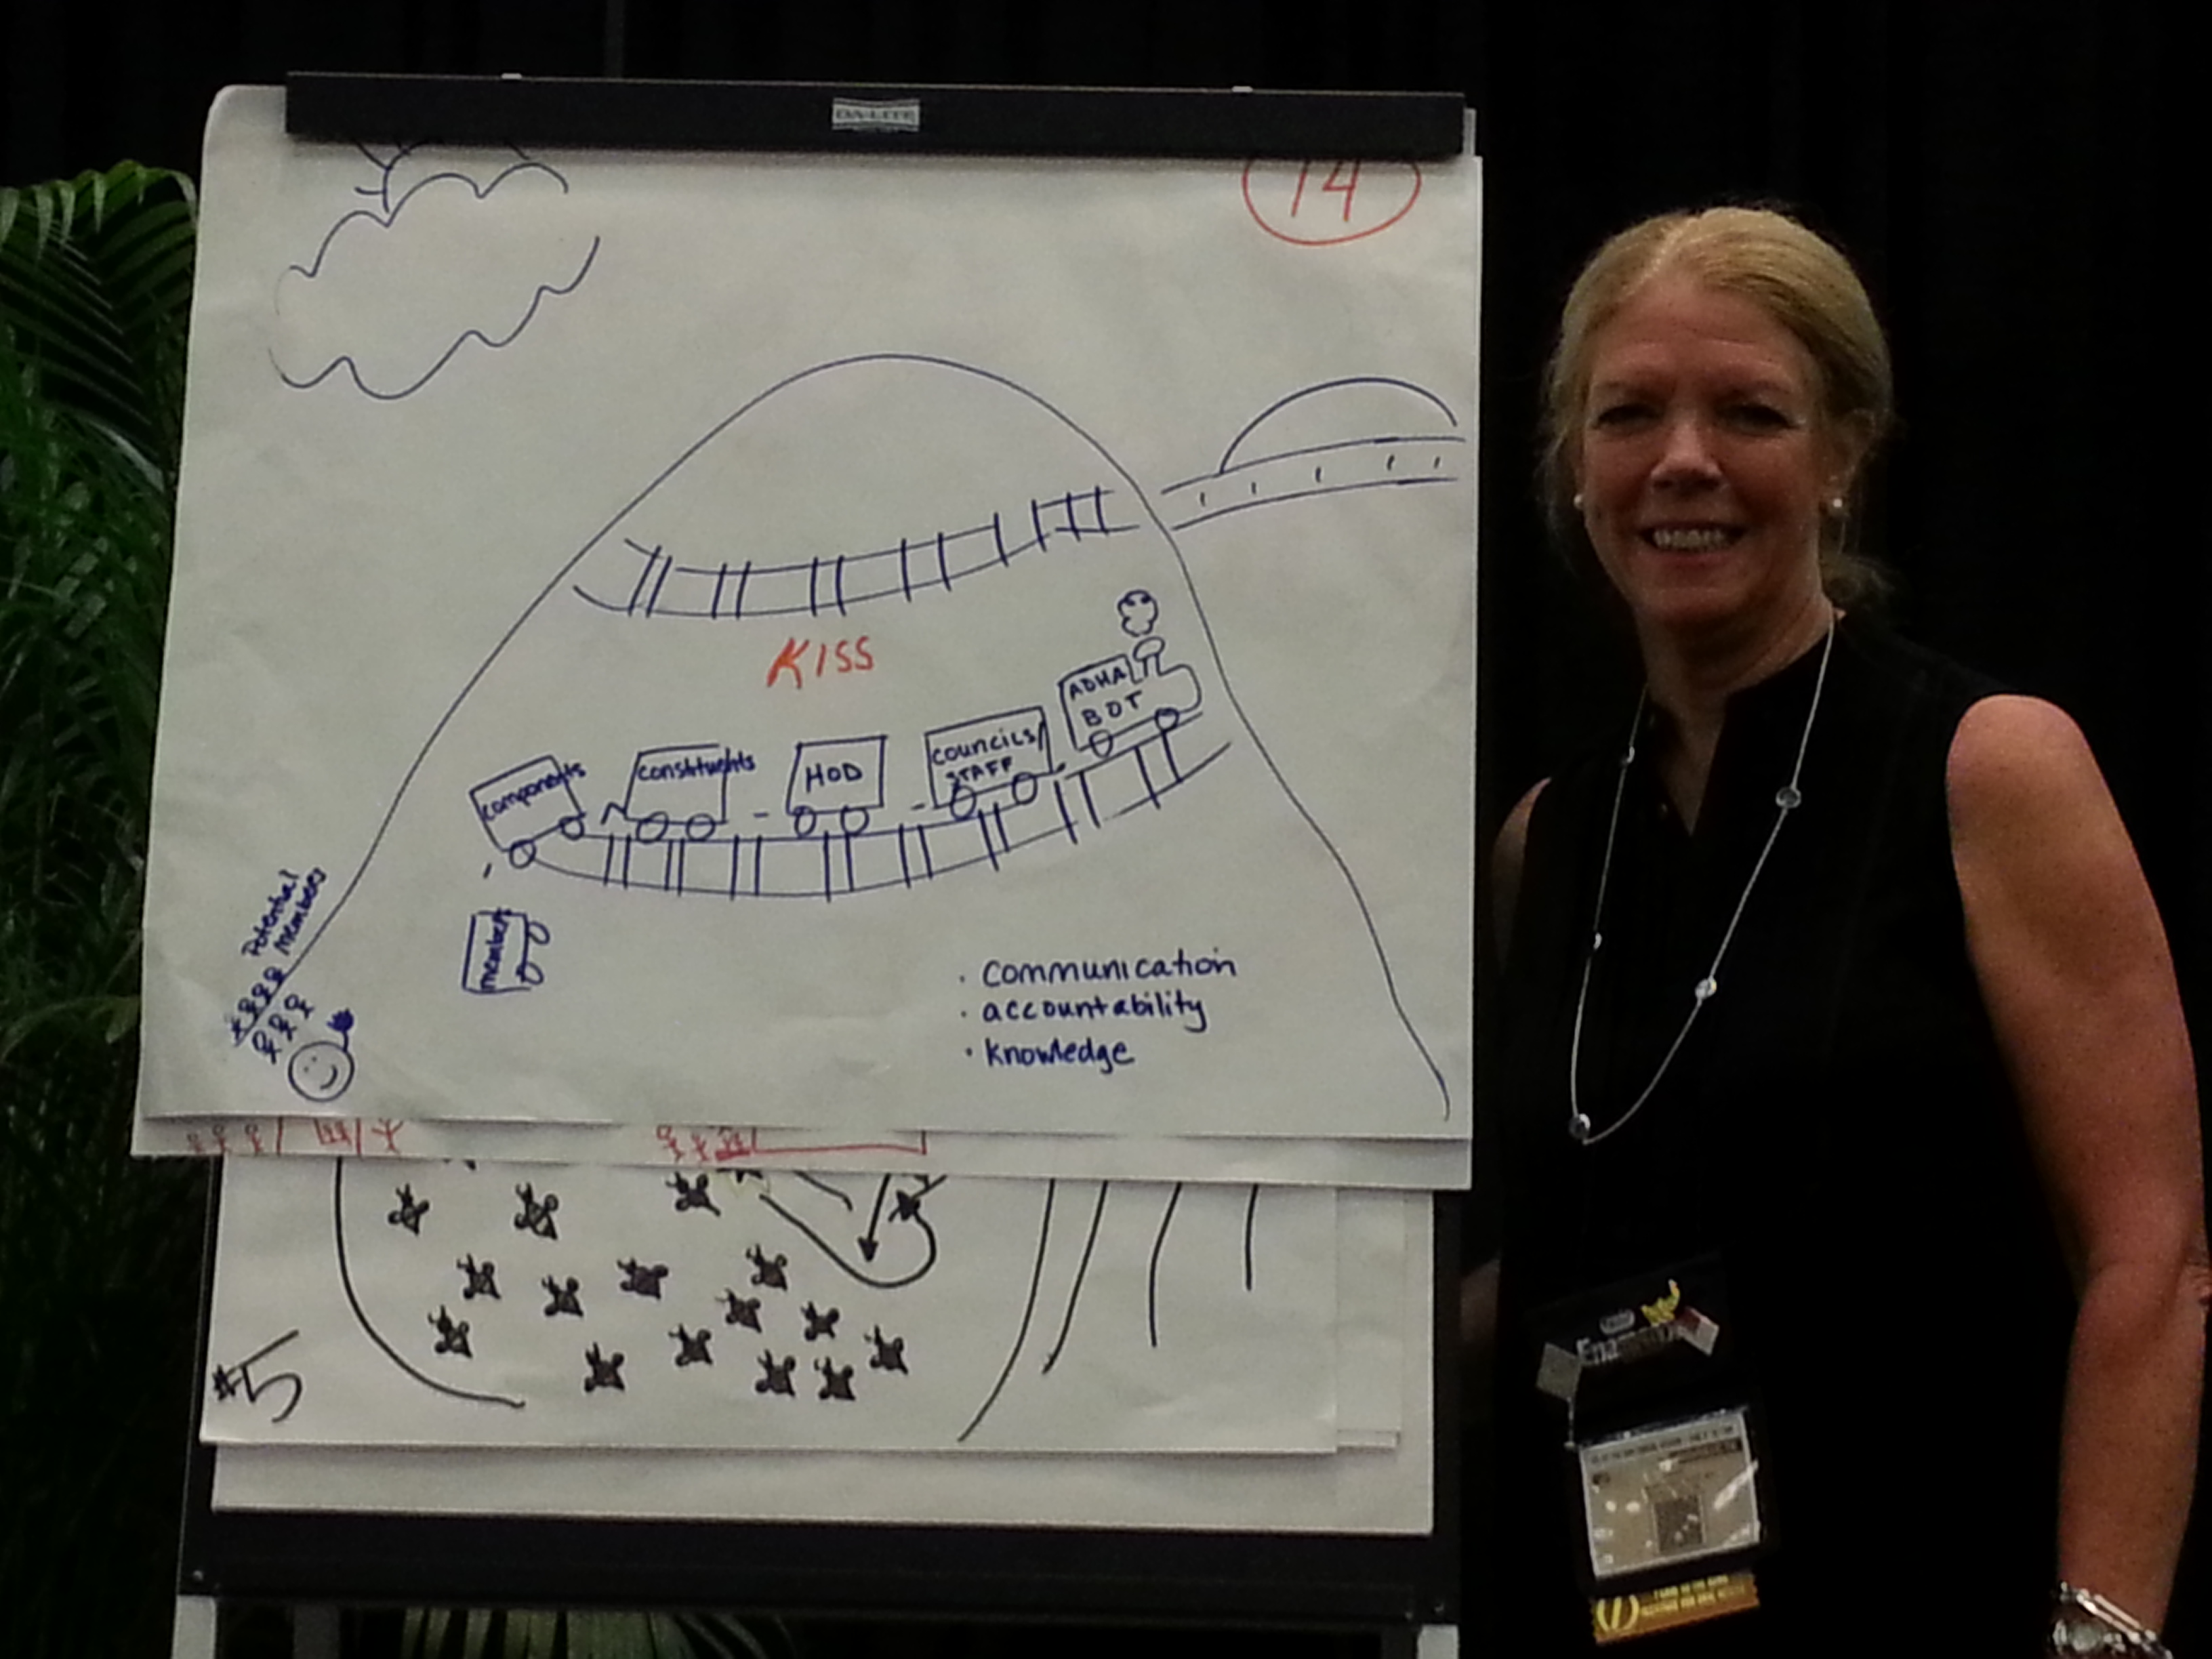 DA-LITE
14
KISS
ADHA
BOT
COUNCILS/
STAFF
HOD
constituents
components
members
Potential
members
. communication
. accountability
. knowledge
#5